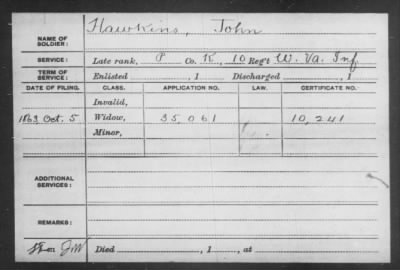 NAME OF SOLDIER: Hawkins, John
SERVICE: Late rank, P Co. K, 10 Reg't W. Va. Inf
TERM OF SERVICE: Enlisted , 1 Discharged , 1
DATE OF FILING. CLASS. APPLICATION NO. LAW. CERTIFICATE NO.
Invalid,
1863, Oct. 5 Widow, 35,061 10,241
Minor,
ADDITIONAL SERVICES:
REMARKS:
Died , 1 , at